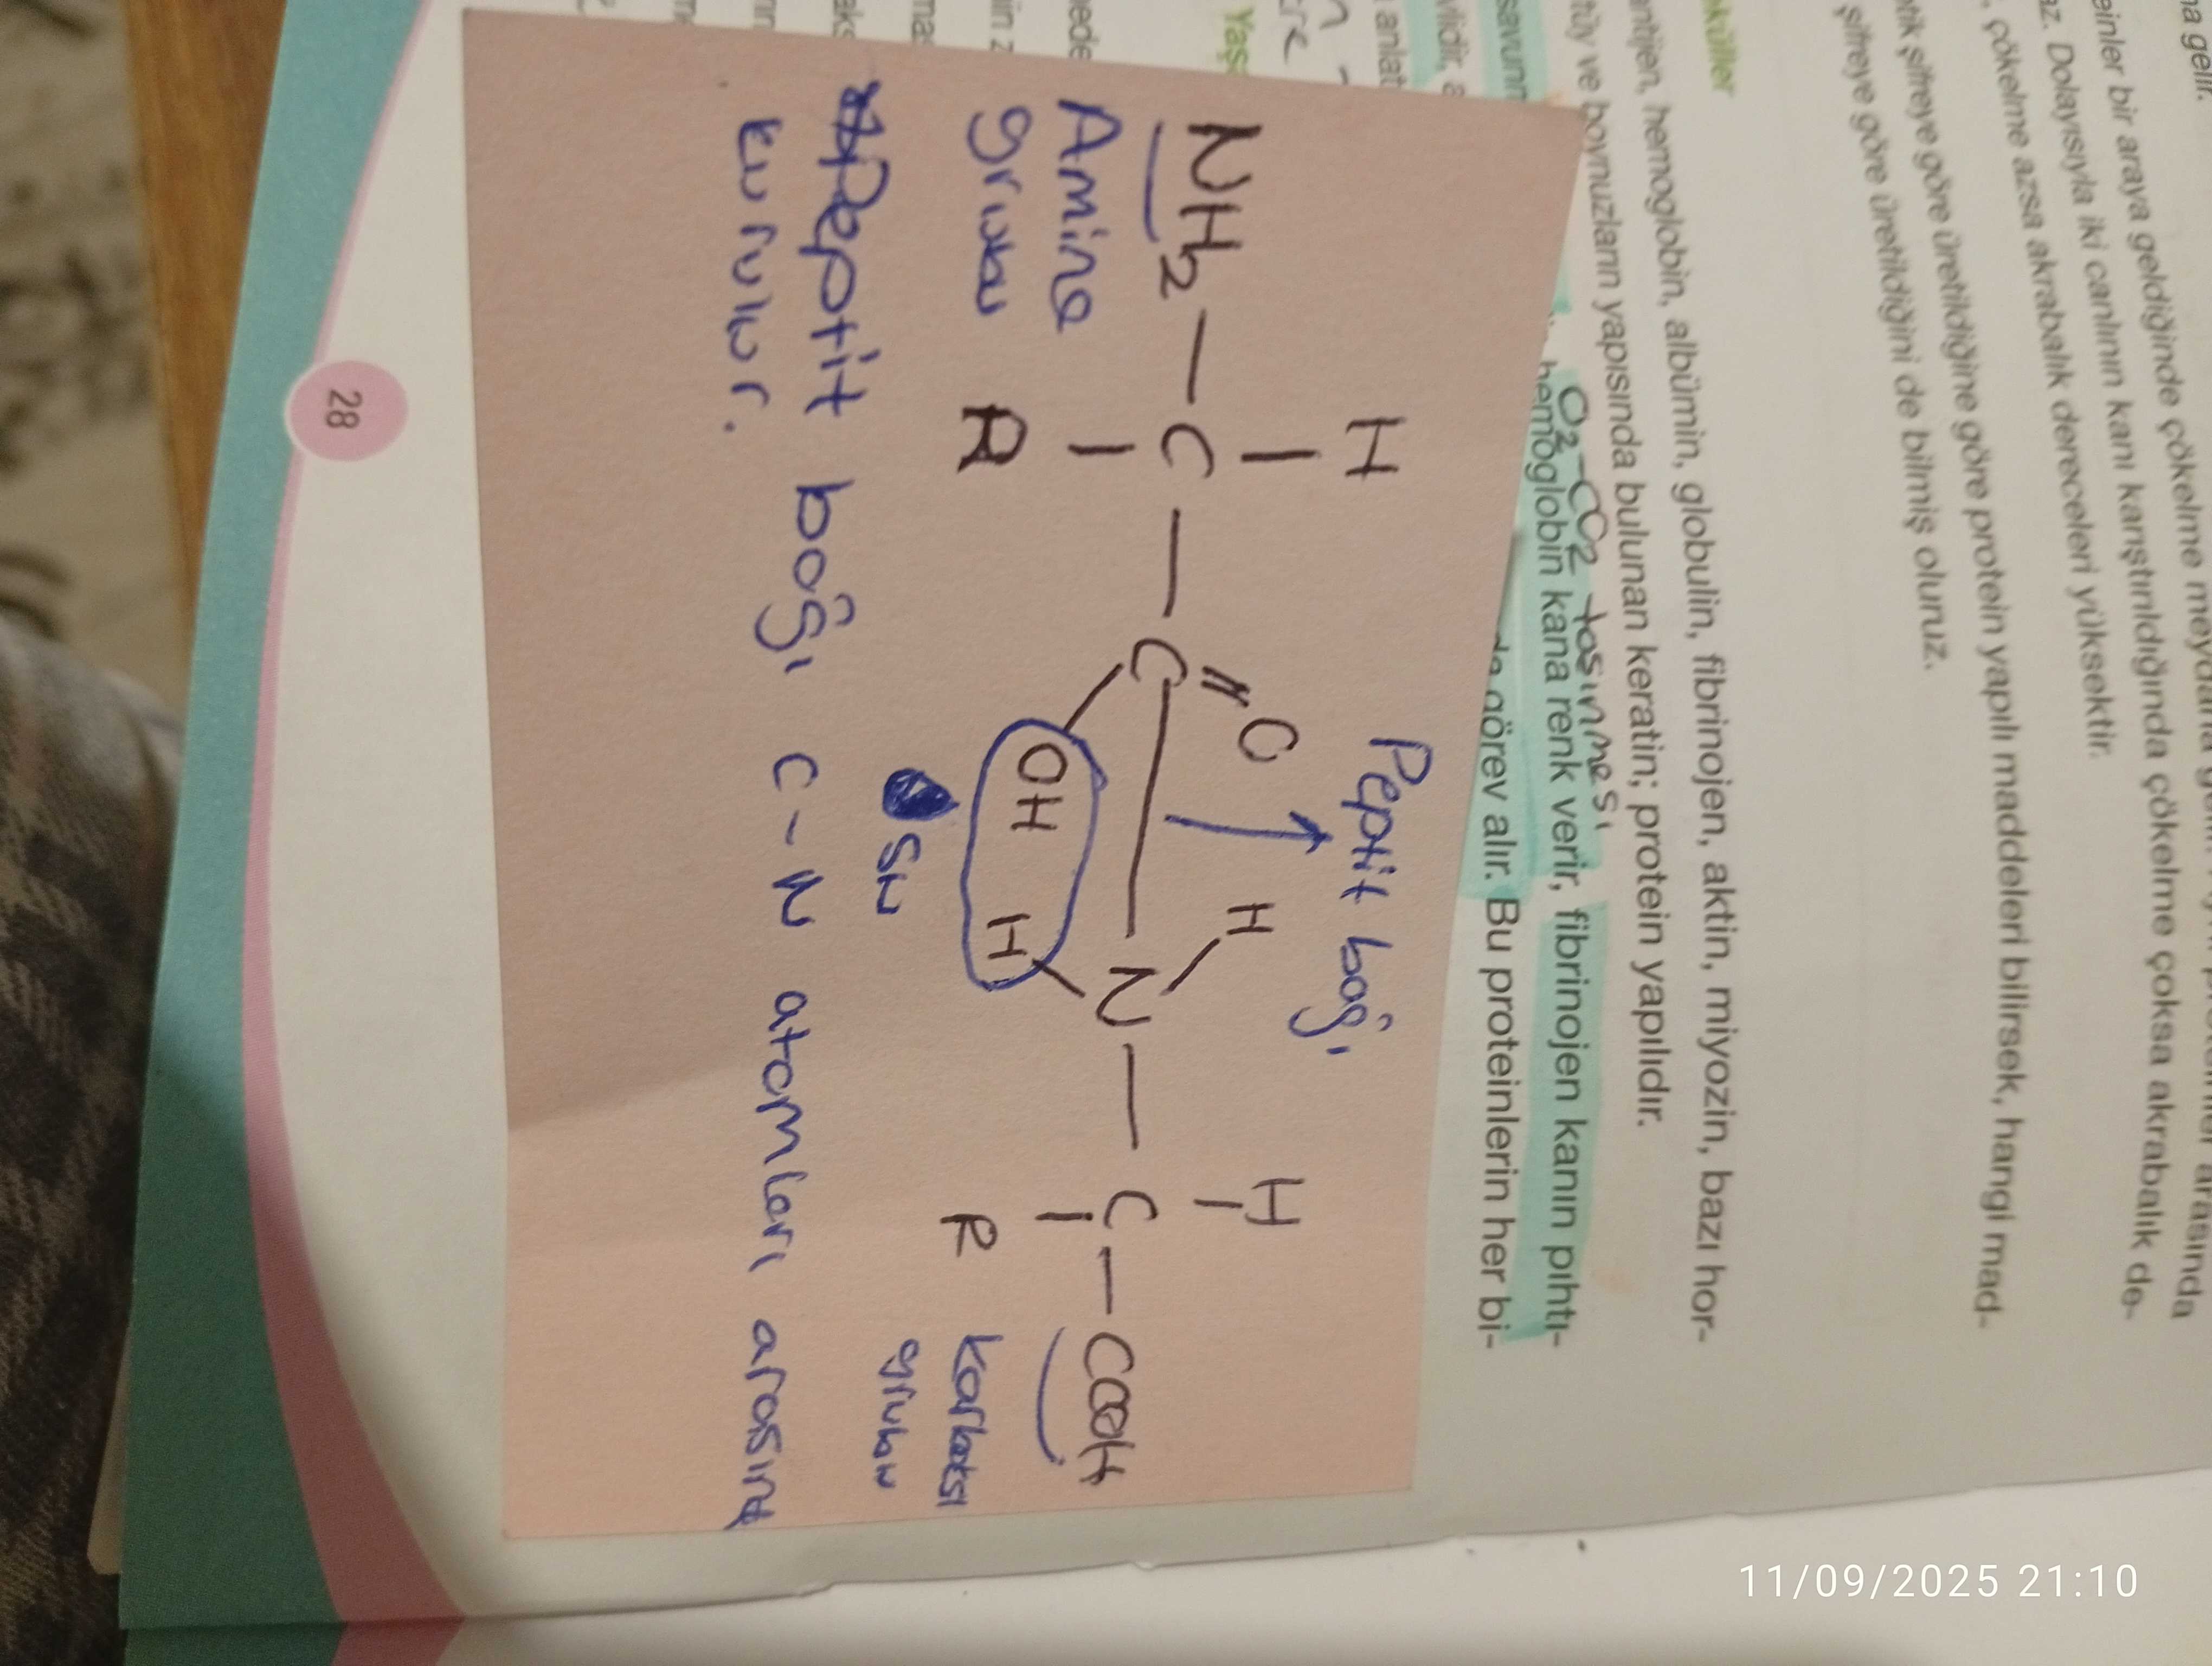 na gelir.
einler bir araya geldiğinde çökelme meydana
arasında
az. Dolayısıyla iki canlının kanı karıştırıldığında çökelme çoksa akrabalık de-
çökelme azsa akrabalık dereceleri yüksektir.
şifreye göre üretildiğine göre protein yapılı maddeleri bilirsek, hangi mad-
şifreye göre üretildiğini de bilmiş oluruz.
eküller
antijen, hemoglobin, albümin, globulin, fibrinojen, aktin, miyozin, bazı hor-
tüy ve boynuzların yapısında bulunan keratin; protein yapılıdır.
O2-CO2 taşınması
hemoglobin kana renk verir, fibrinojen kanın pıhtı-
savunm
görev alır. Bu proteinlerin her bi-
anlat
Yaş
Peptit bağı
H H H
O
NH2 — C — C — N — C — COOH
Amino grubu
R
OH H
R
Karboksil grubu
SU
Peptit bağı C-N atomları arasında
kurulur.
28
11/09/2025 21:10